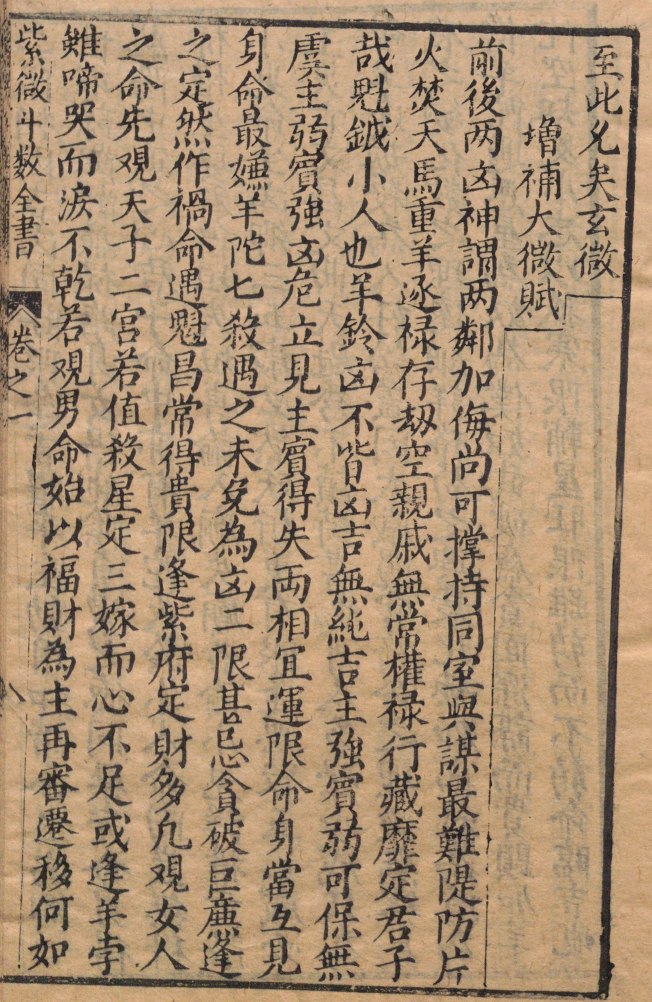 至此允矣玄微
增補太微賦
前後两凶神謂两鄰加侮尚可撑持同室與謀最難隄防片
火焚天馬重羊逐禄存刼空親戚無常權禄行藏靡定君子
哉魁鉞小人也羊鈴凶不皆凶吉無純吉主強賓弱可保無
虞主弱賓強凶危立見主賓得失両相宜運限命身當互見
身命最嫌羊陀七殺遇之未免為凶二限甚忌貪破巨廉逢
之定然作禍命遇魁昌常得貴限逢紫府定財多凢觀女人
之命先观天子二宫若值殺星定三嫁而心不足或逢羊孛
雖啼哭而淚不乾若观男命始以福財為主再審遷移何如
紫微斗数全書
卷之一